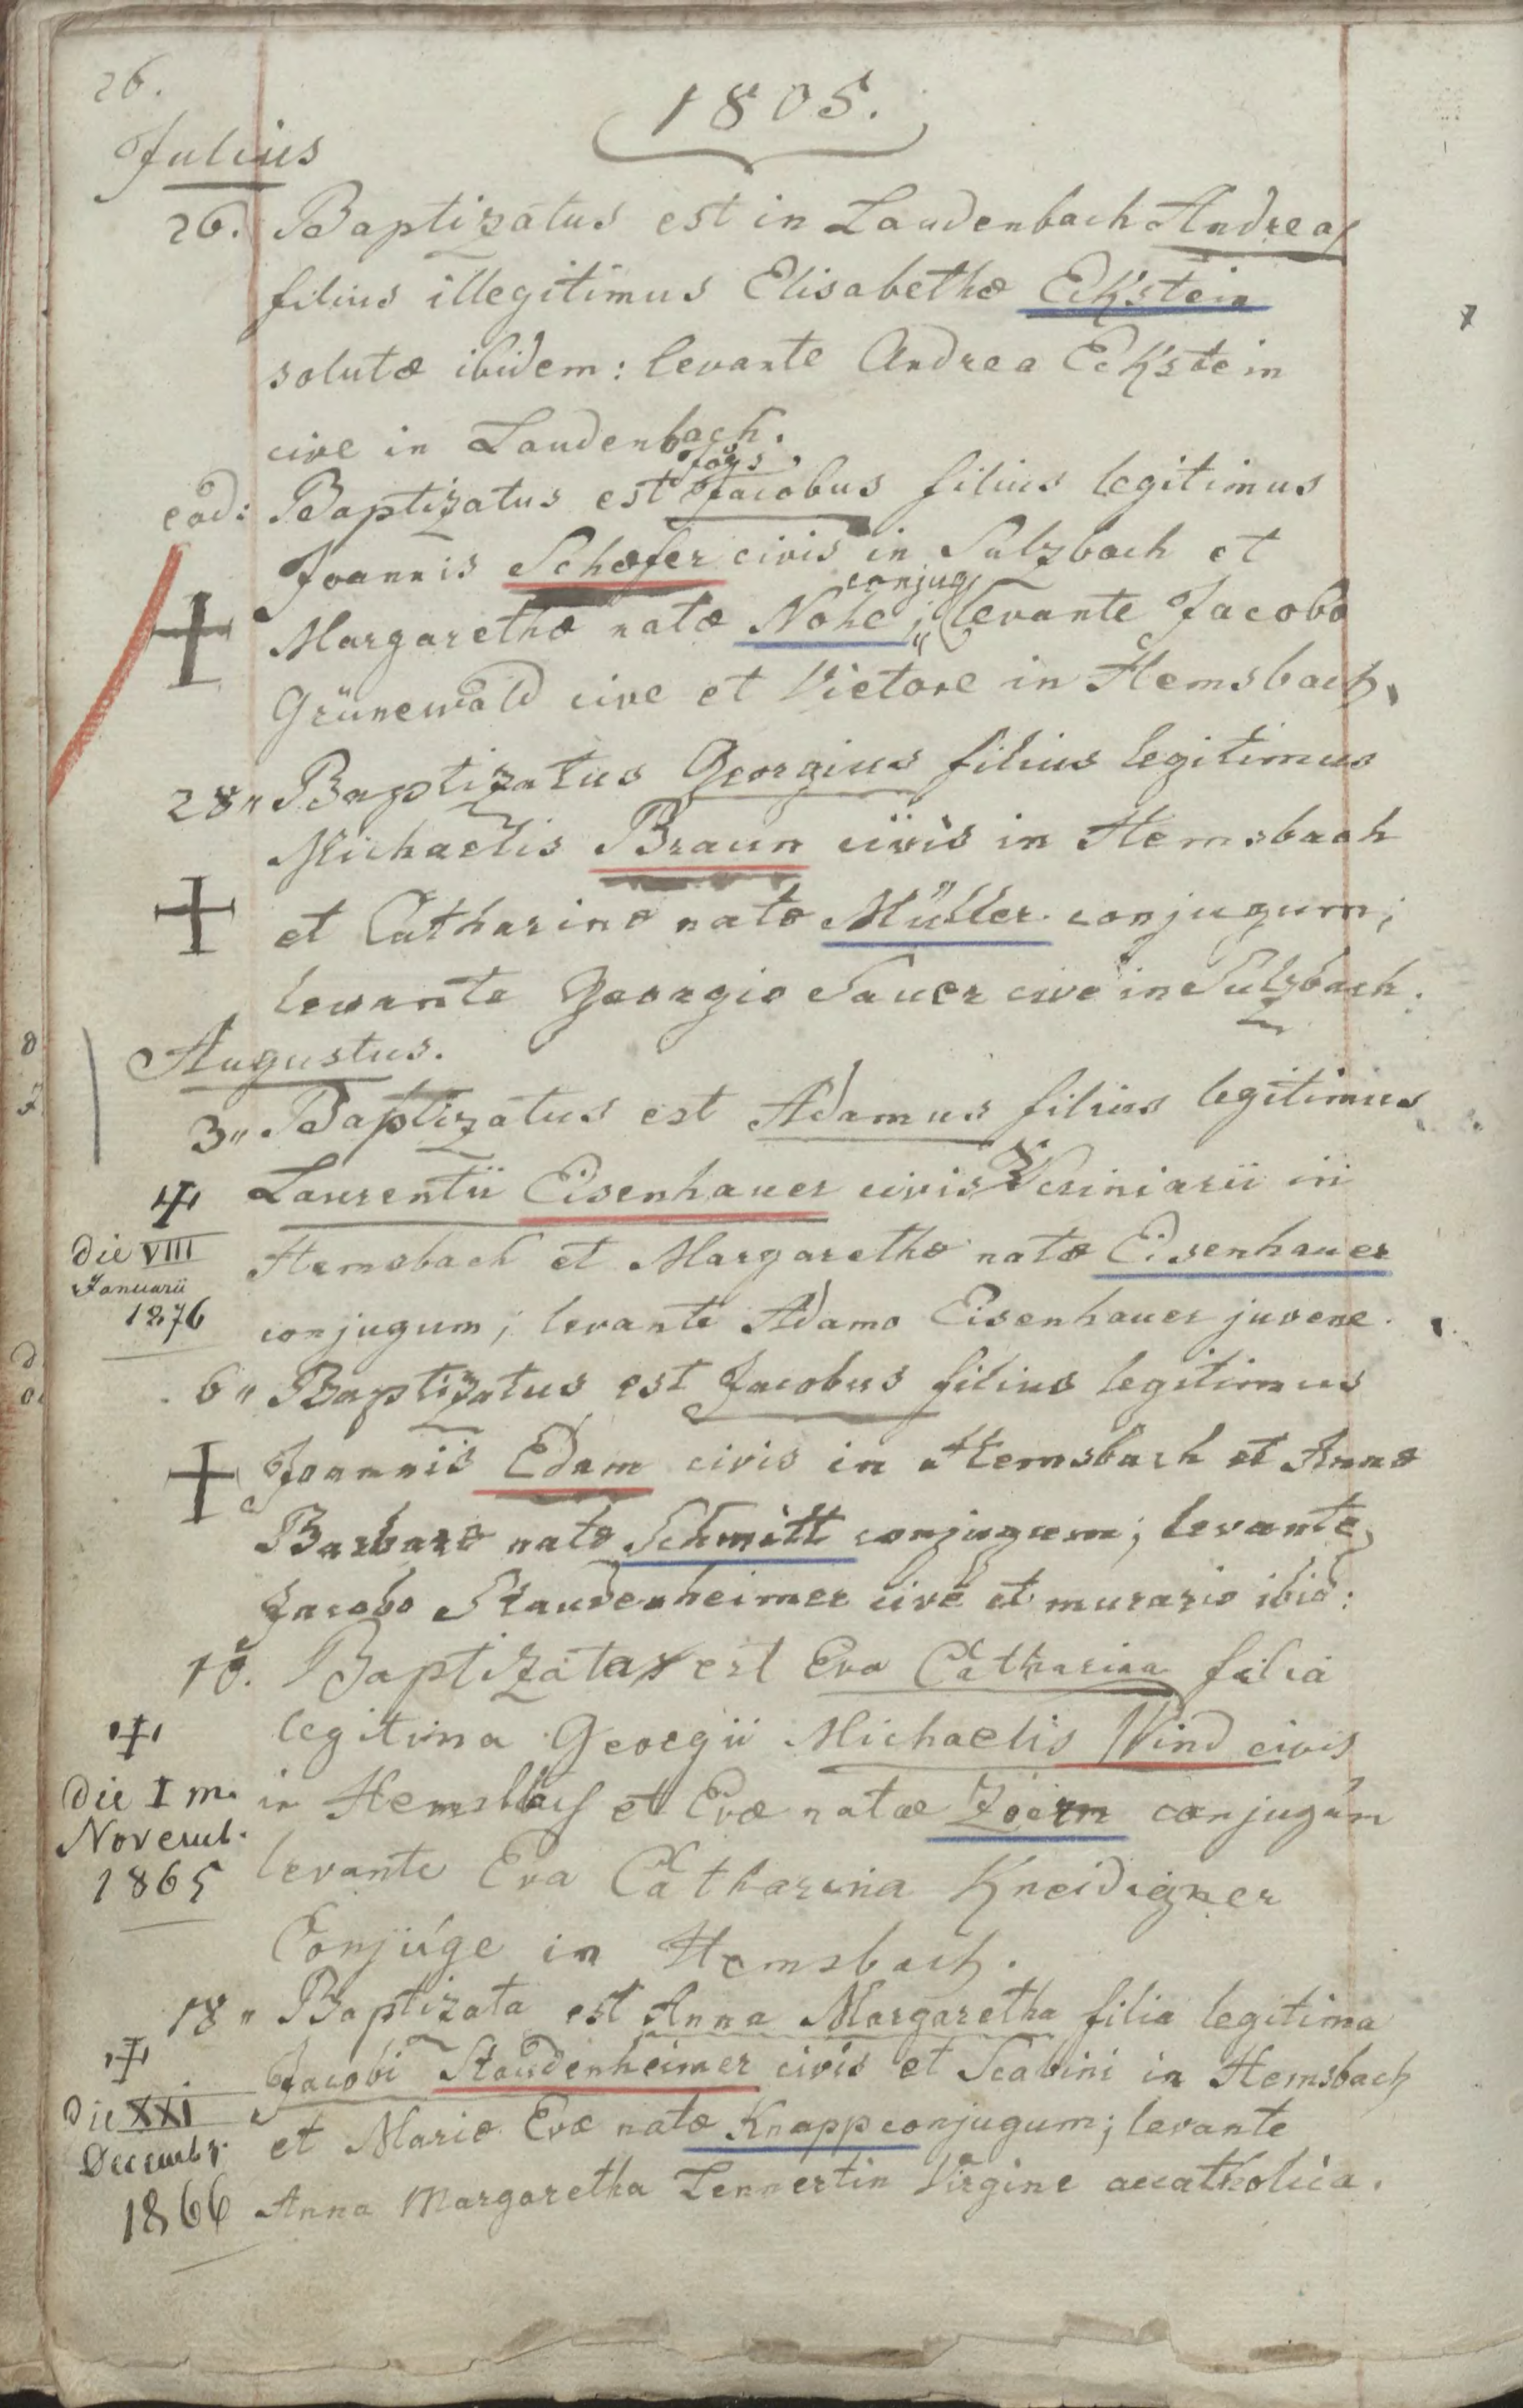 26.
1805.
Julius
26. Baptizatus est in Laudenbach Andreas
filius illegitimus Elisabethæ Eckstein
solutæ ibidem: levante Andrea Eckstein
cive in Laudenbach.
ead: Baptizatus est Jacobus filius legitimus
Joannis Schæfer civis in Sulzbach et
conjug
Margarethæ natæ Nohe; levante Jacobo
Grünewald cive et Vietore in Hemsbach.
28 " Baptizatus Georgius filius legitimus
Michaelis Braun civis in Hemsbach
et Catharinæ natæ Müller conjugum;
levante Georgio Sauer cive in Sulzbach.
Augustus.
3 " Baptizatus est Adamus filius legitimus
Laurentii Eisenhauer civis Scriniarii in
die VIII
Januarii
1876
Hemsbach et Margarethæ natæ Eisenhauer
conjugum; levante Adamo Eisenhauer juvene.
6 " Baptizatus est Jacobus filius legitimus
Joannis Edam civis in Hemsbach et Annæ
Barbaræ natæ Schmitt conjugum; levante
Jacobo Staudenheimer cive et murario ibid:
10. Baptizata est Eva Catharina filia
legitima Georgii Michaelis Wind civis
die I m.
Novemb.
1865
in Hemsbach et Evæ natæ Zörn conjugum
levante Eva Catharina Kneidigner
Conjúge in Hemsbach.
18 " Baptizata est Anna Margaretha filia legitima
Jacobi Staudenheimer civis et Scabini in Hemsbach
die XXI
Decembr.
1866
et Mariæ Evæ natæ Knapp conjugum; levante
Anna Margaretha Lennertin Virgine accatholica.